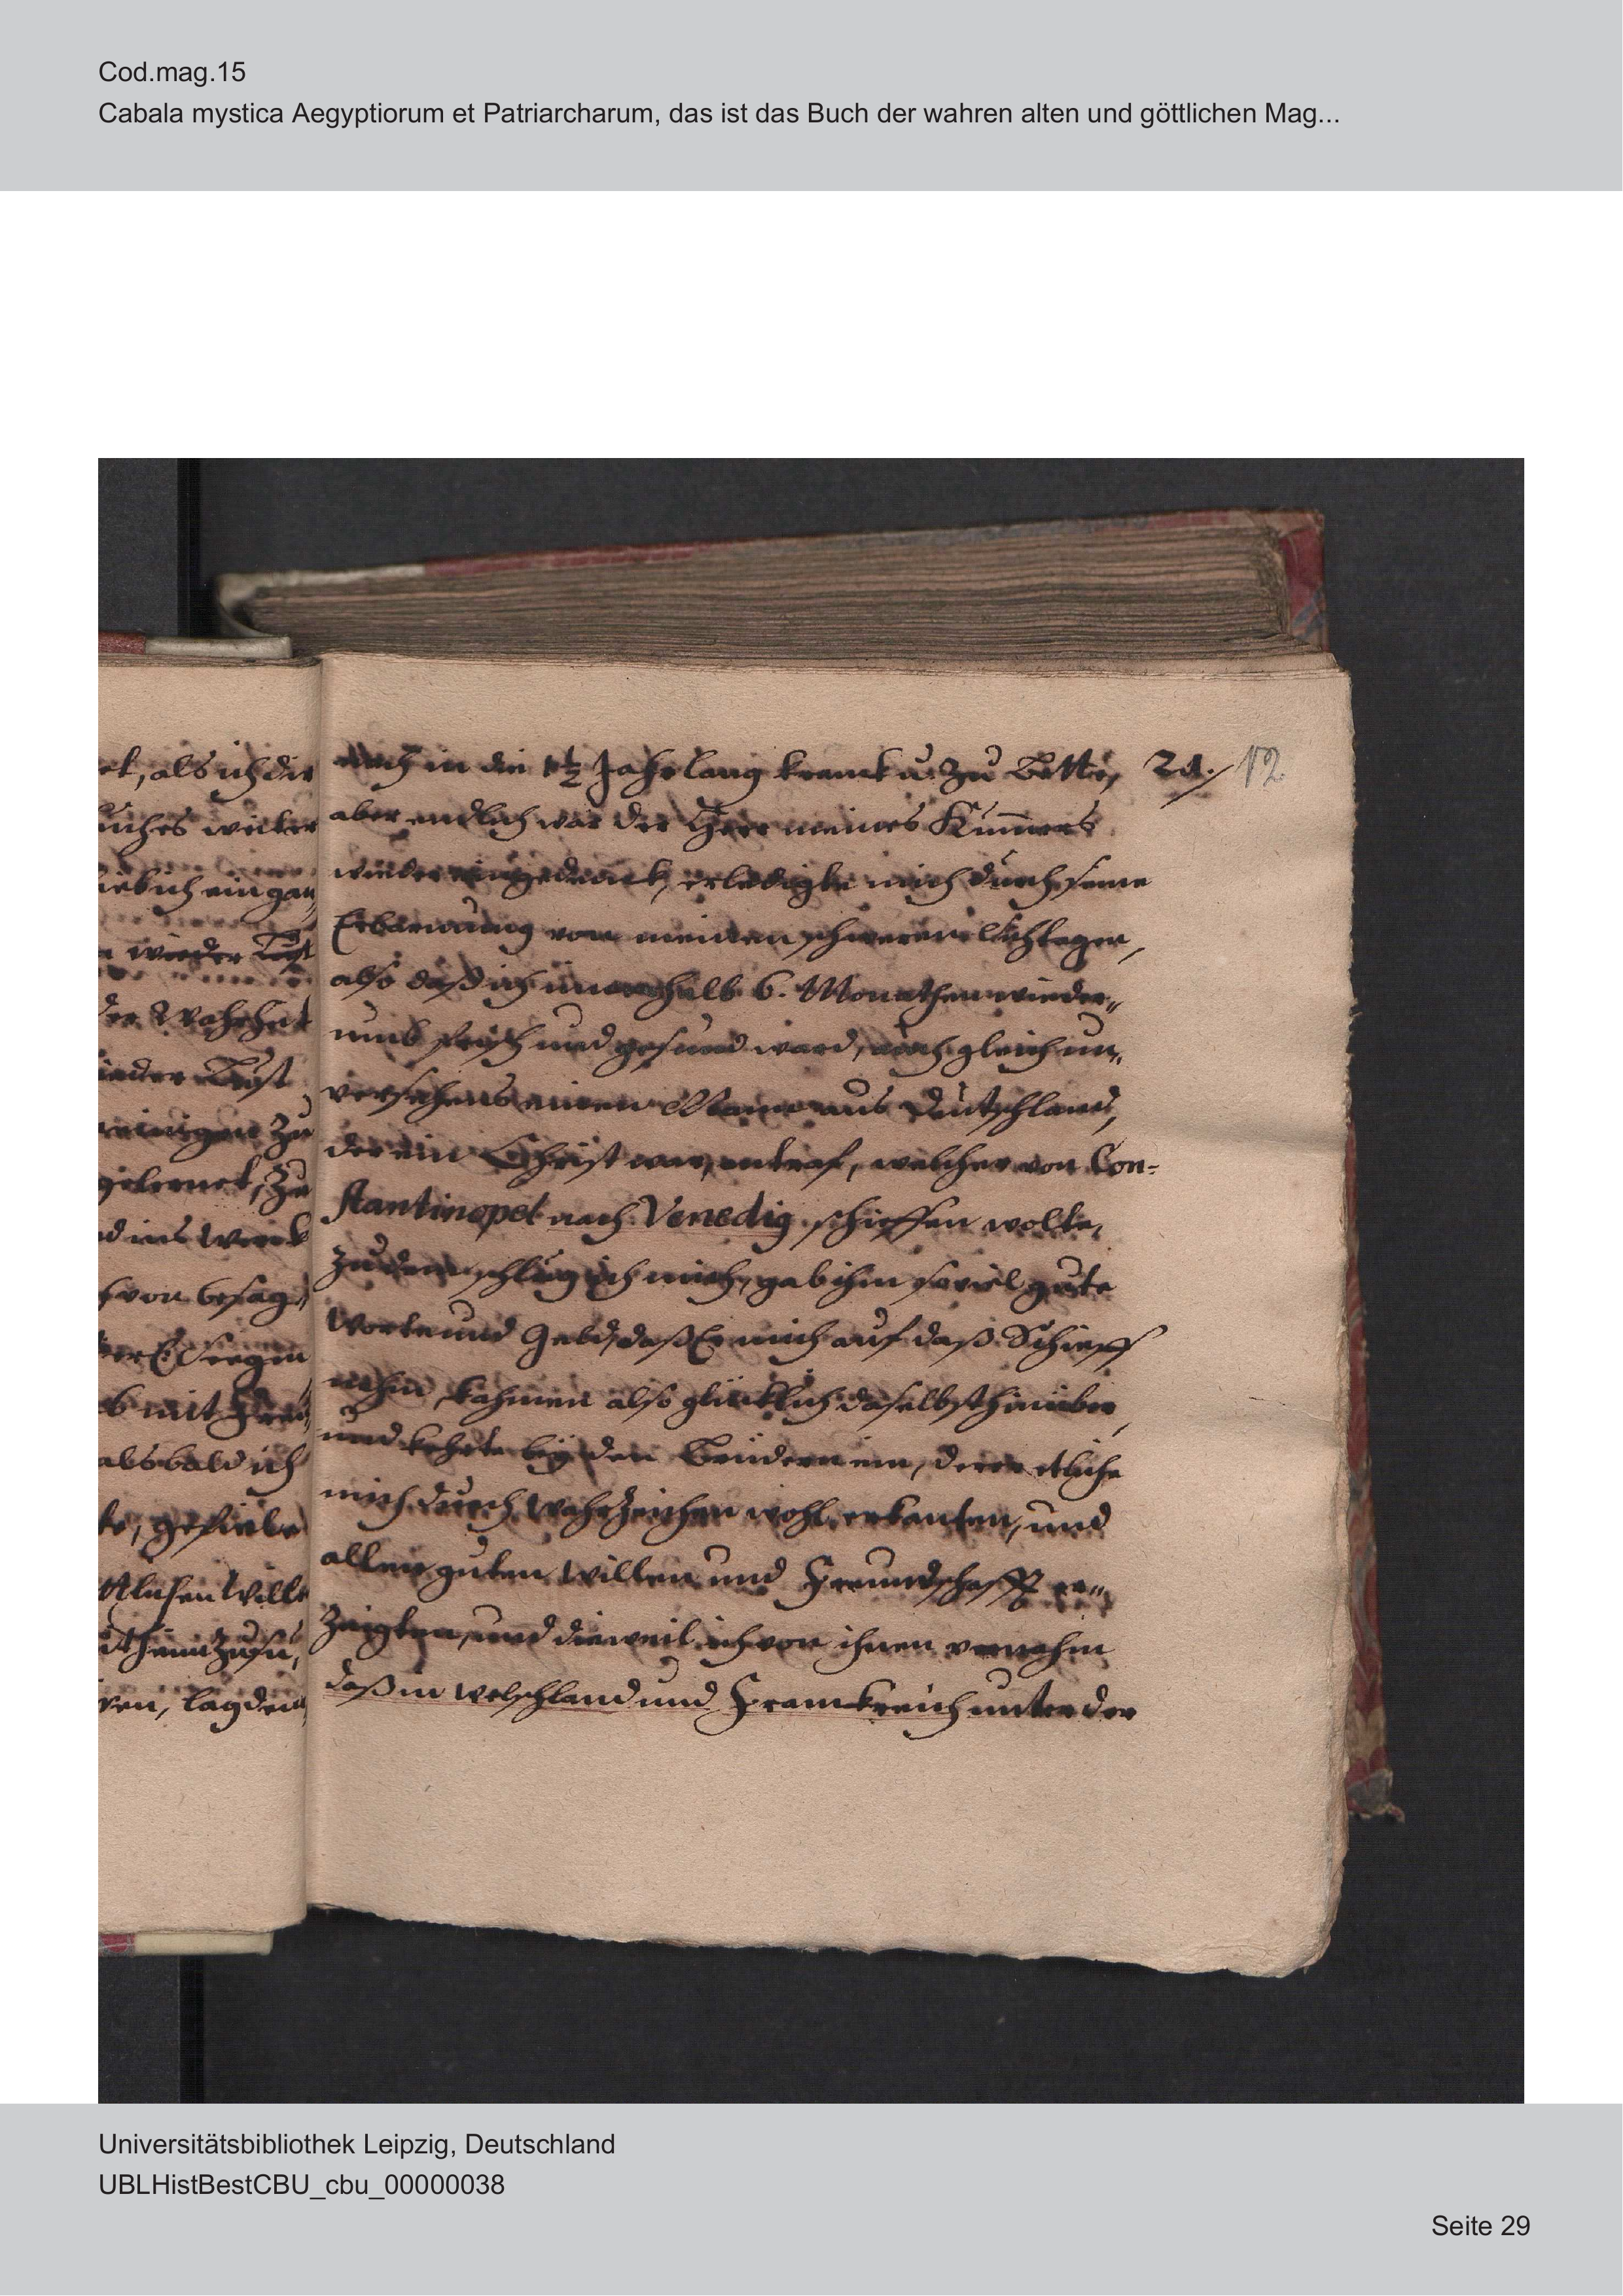 Cod.mag.15
Cabala mystica Aegyptiorum et Patriarcharum, das ist das Buch der wahren alten und göttlichen Mag...
et, als ich die
uches weiter
wieder Lust
der Wahrheit
ieder Lust
einigen zu
gelernet, zu
d ins Werk
von besag„
b mit
alsbald ich
te, gefiele
ren, lag den„
noch in die 1½ Jahr lang kranck u. zu Bette, 21. 12
aber endlich war der Herr meines Kum̄ers
wieder eingedenck, erledigte mich durch seine
Erbarmung von meinem schweren Lichlager,
also daß ich innerhalb 6. Monathen wieder„
umb frisch und gesund ward, auch gleich un„
versehens einen Mann aus Deutschland,
der ein Christ war, antraf, welcher von Con-
stantinopel nach Venedig schieffen wolte,
zu dem schlug ich mich, gab ihm soviel gute
Worte und Geld, daß Er mich auf daß Schieff
nahm, kahmen also glücklich daselbst hinüber,
und kehrte bey den Brüdern ein, derer etliche
mich durch Wahrzeichen wohl erkanten, und
allen guten Willen und Freundschafft er„
zeigten, und dieweil ich von ihnen vernahm
daß in Welschland und Franckreich unter der
Universitätsbibliothek Leipzig, Deutschland
UBLHistBestCBU_cbu_00000038
Seite 29